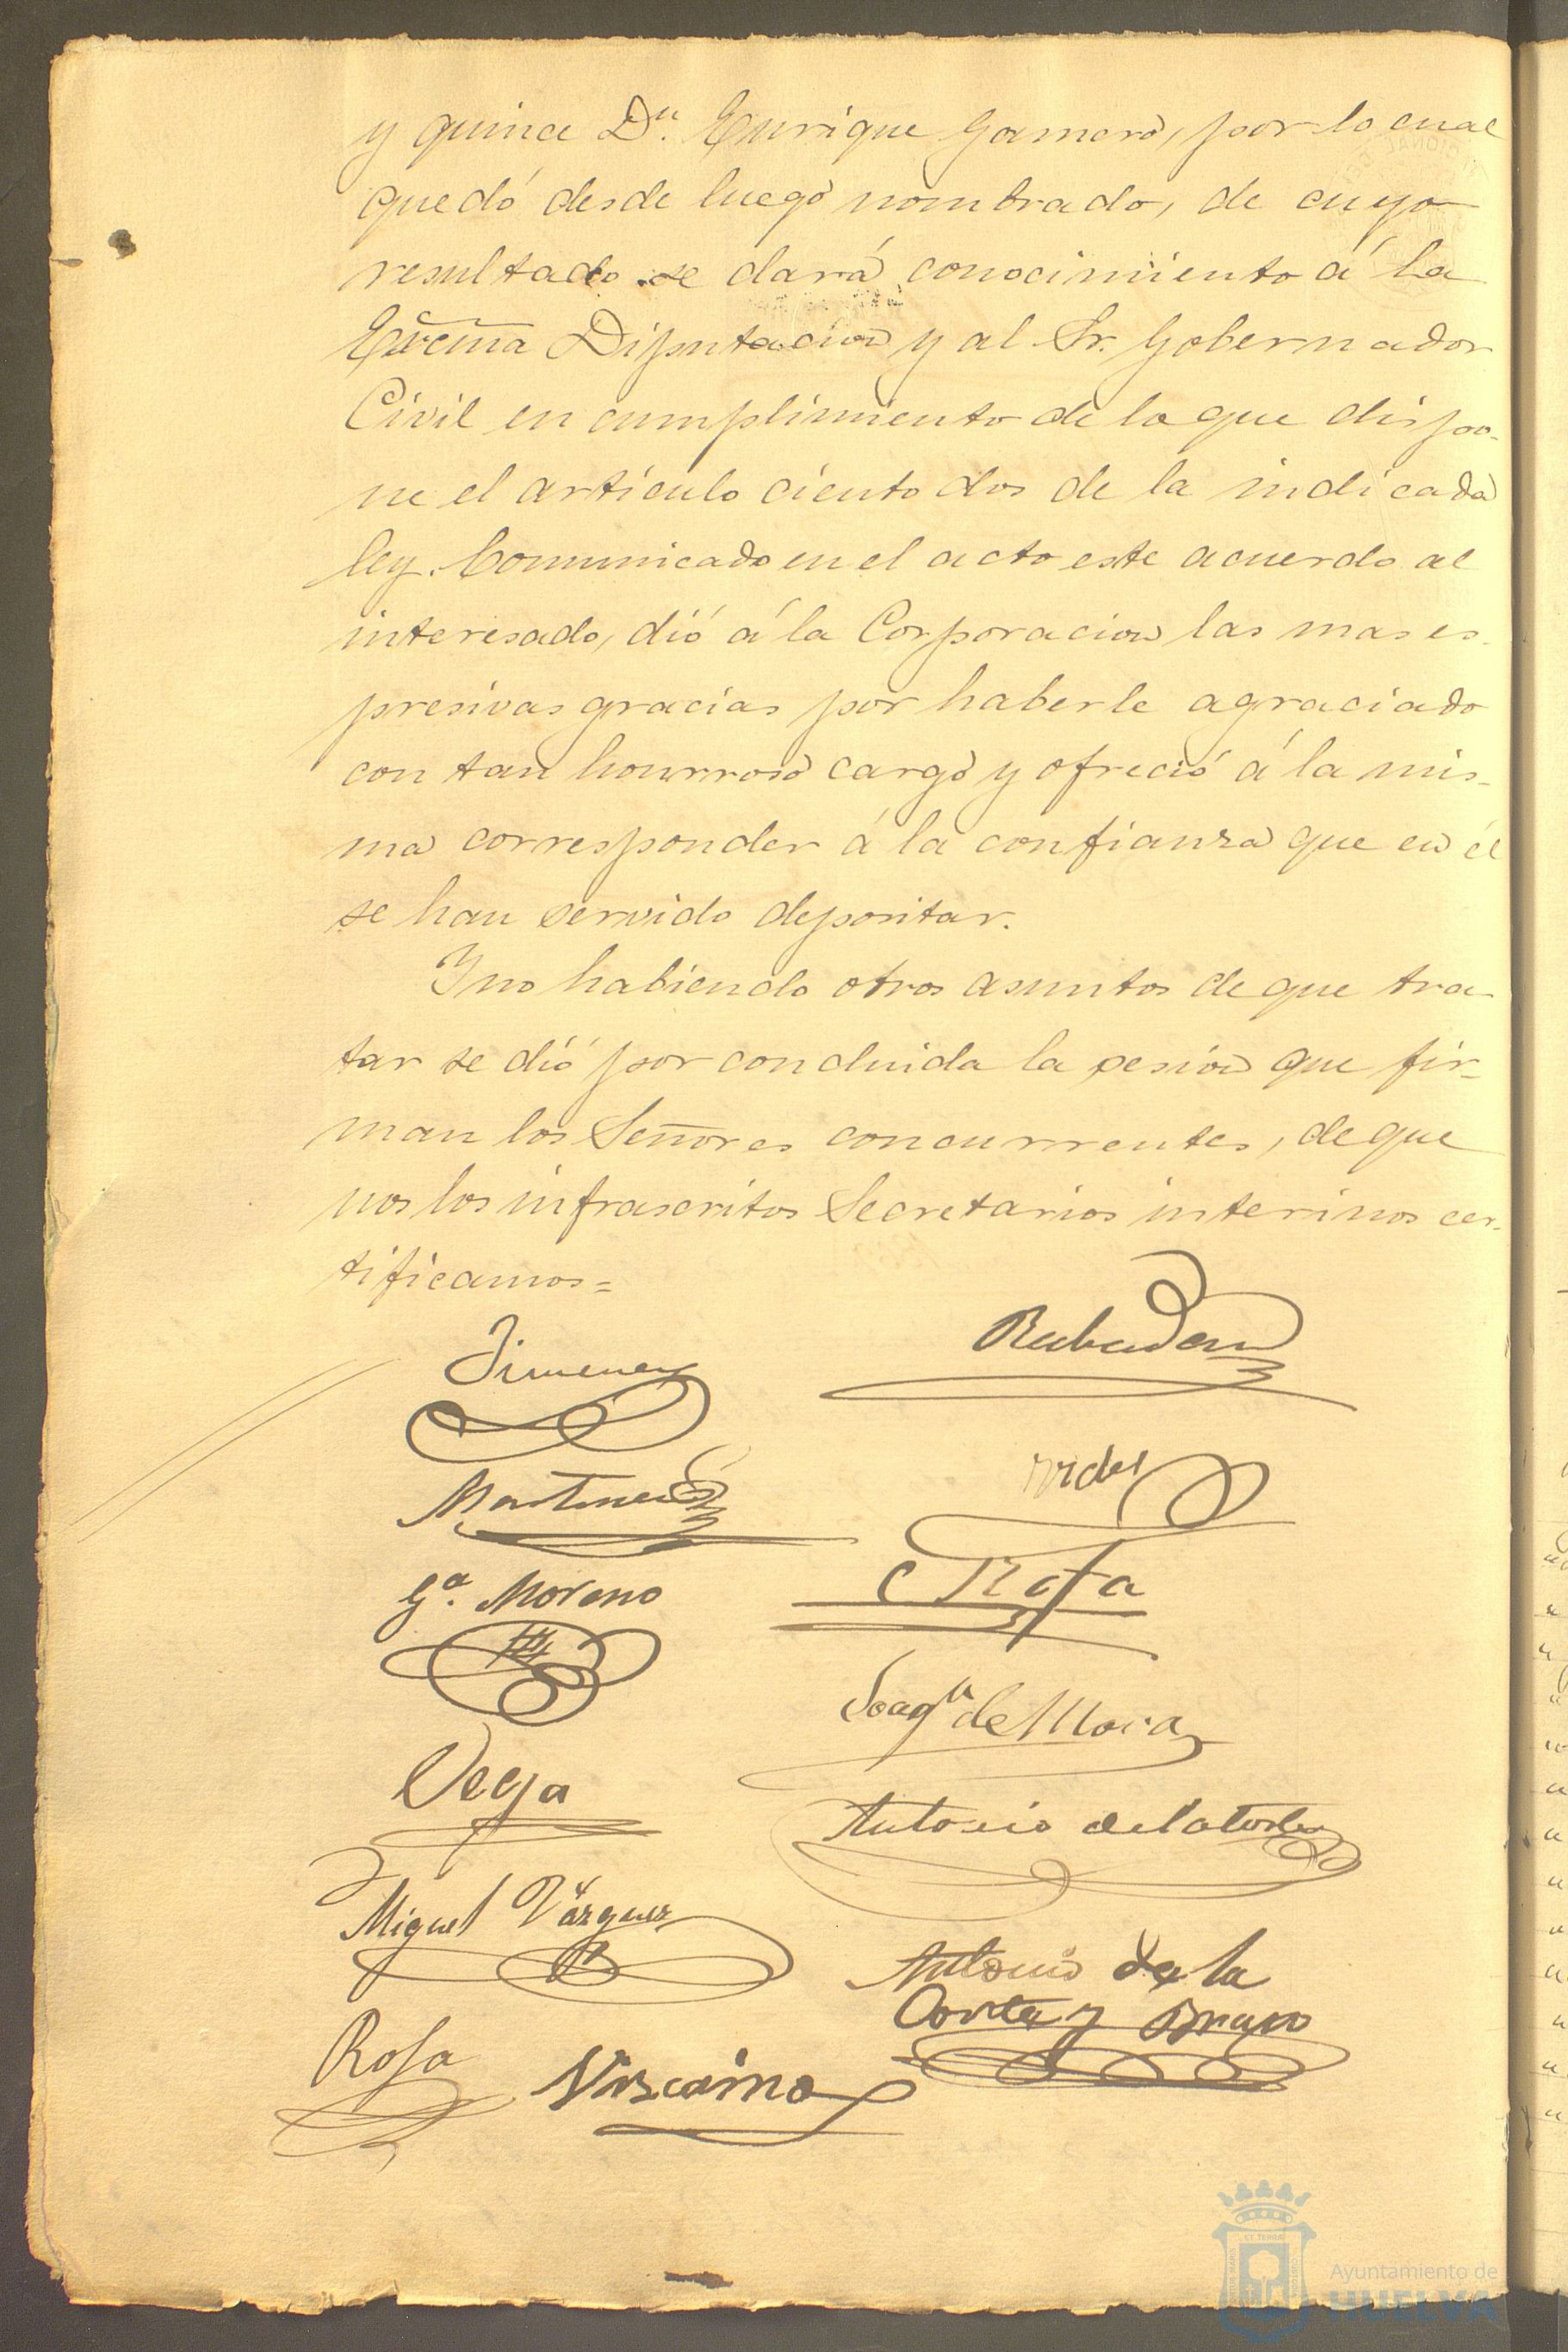 y quince Dn. Enrique Gamero, por lo cual
quedó desde luego nombrado, de cuyo
resultado se dará conocimiento á la
Excma Diputacion y al Sr. Gobernador
Civil en cumplimiento de lo que dispo-
ne el artículo ciento dos de la indicada
ley. Comunicado en el acto este acuerdo al
interesado, dió á la Corporacion las mas es-
presivas gracias por haberle agraciado
con tan honrroso cargo y ofreció á la mis-
ma corresponder á la confianza que en él
se han servido depositar.
Y no habiendo otros asuntos de que tra-
tar se dió por concluida la sesion que fir-
man los Señores concurrentes, de que
nos los infrascritos Secretarios interinos cer-
tificamos=
Jimenez
Rabadan
Martinez
Ga. Moreno
Joaqn de Mora
Vega
Antonio de la Torre
Miguel Vazquez
Antonio de la
Corte y Bravo
Rosa
Viscaino
Ayuntamiento de
HUELVA